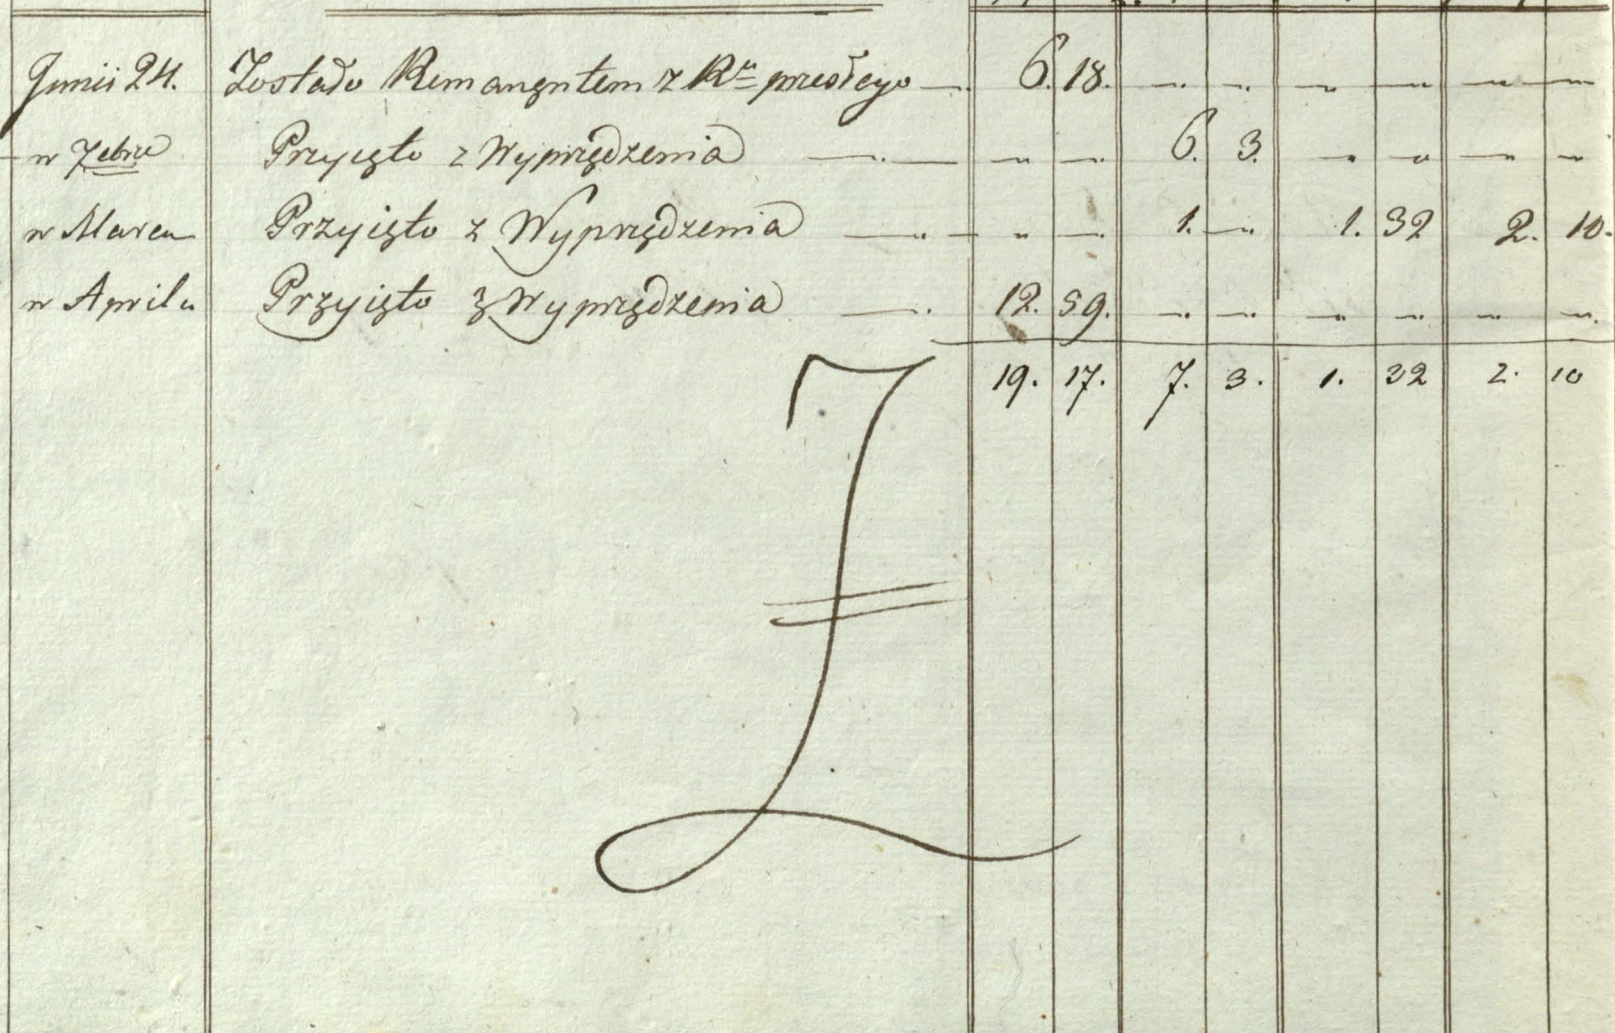 Junii 24. Zostało Remanentem z Ru przeszłego —. 6. 18. —. —. — — — —
w 7bru Przyięto z Wyprzędzenia —. — — —. 6. 3. — — — —
w Marcu Przyięto z Wyprzędzenia —. — — —. 1. —. 1. 32 2. 10.
w Aprilu Przyięto z Wyprzędzenia —. 12. 59. —. —. — — — —.
19. 17. 7. 3. 1. 32 2. 10